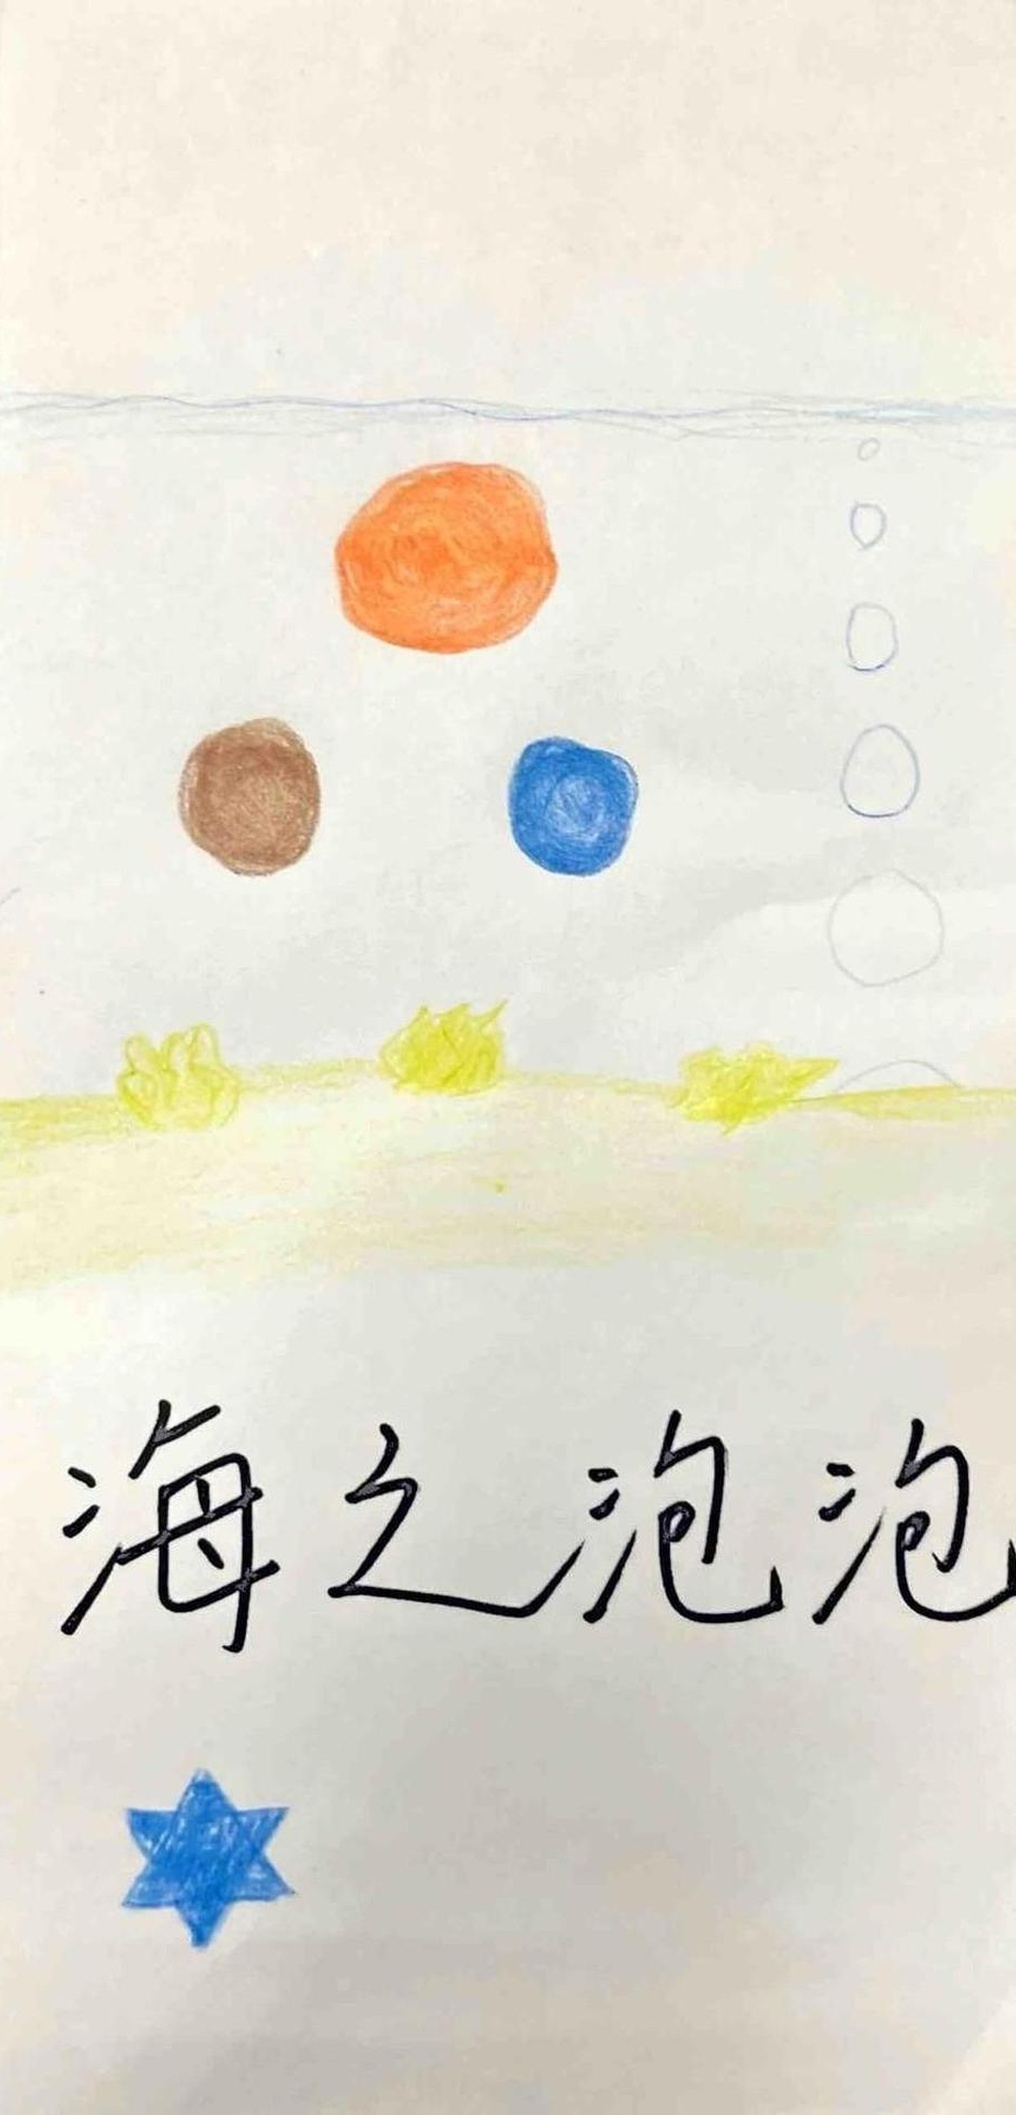 海之泡泡